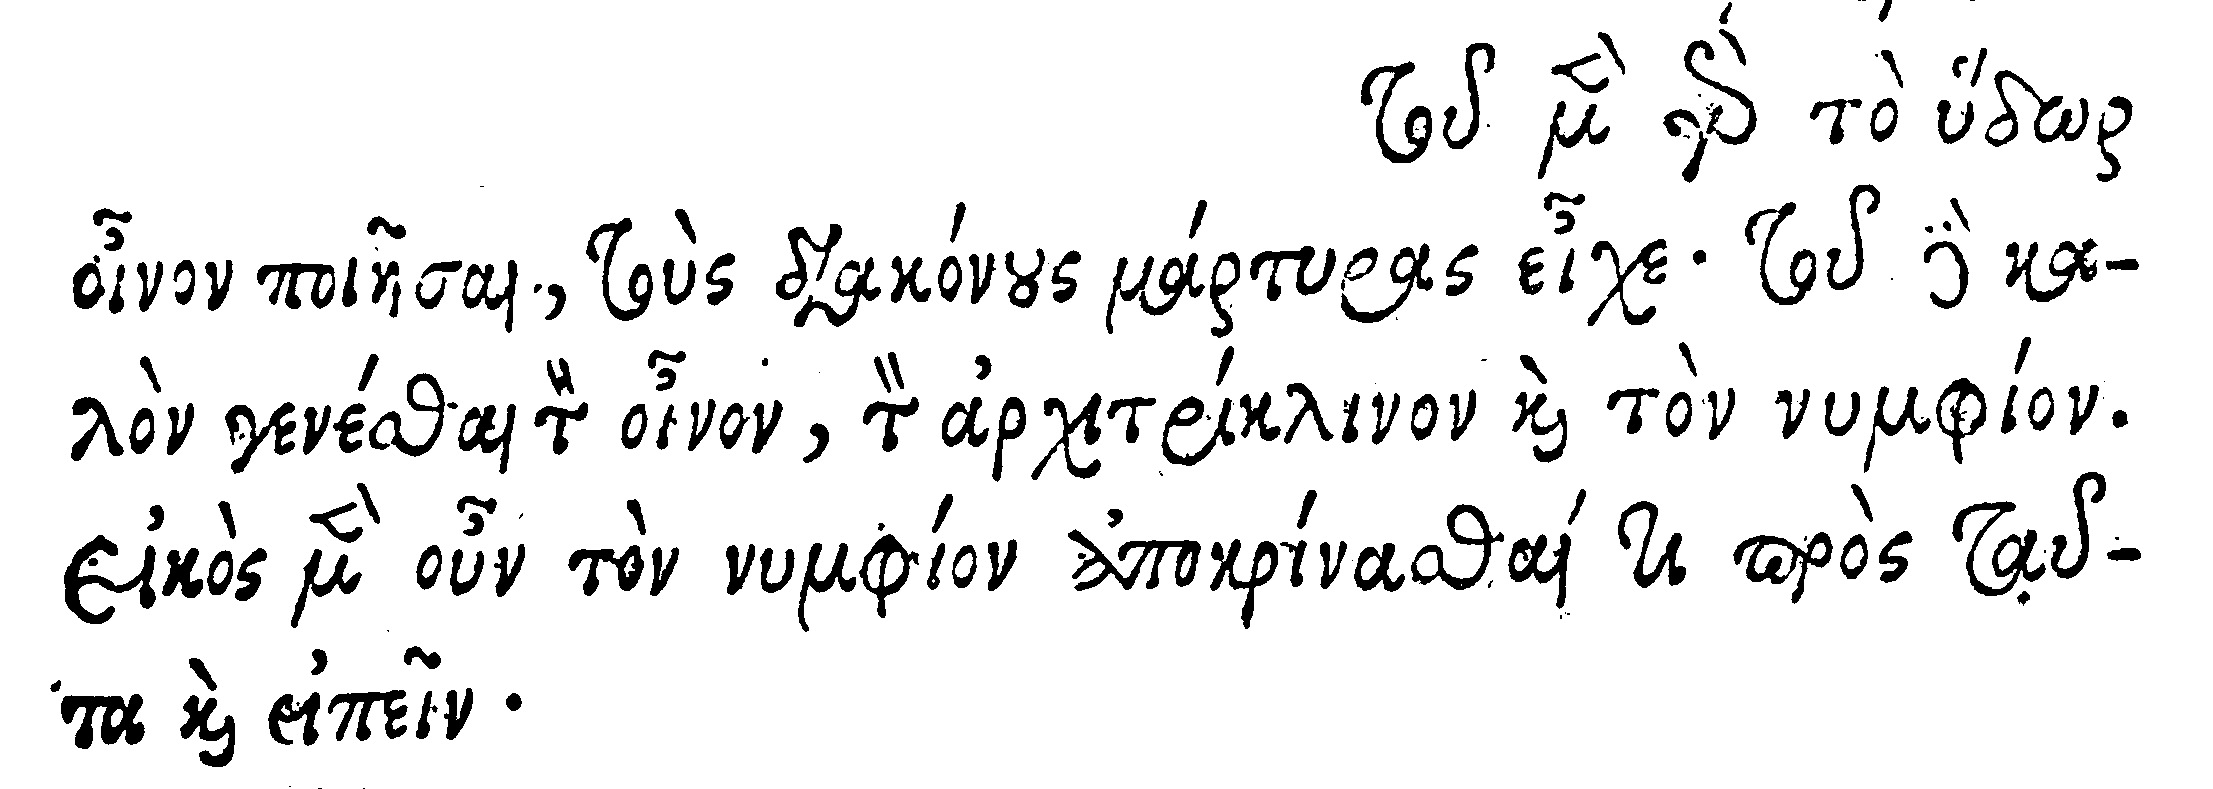 τοῦ μὲν γὰρ τὸ ὕδωρ
οἶνον ποιῆσαι, τοὺς διακόνους μάρτυρας εἶχε· τοῦ δὲ κα-
λὸν γενέσθαι τὸν οἶνον, τὸν ἀρχιτρίκλινον καὶ τὸν νυμφίον.
εἰκὸς μὲν οὖν τὸν νυμφίον ἀποκρίνασθαί τι πρὸς ταῦ-
τα καὶ εἰπεῖν·